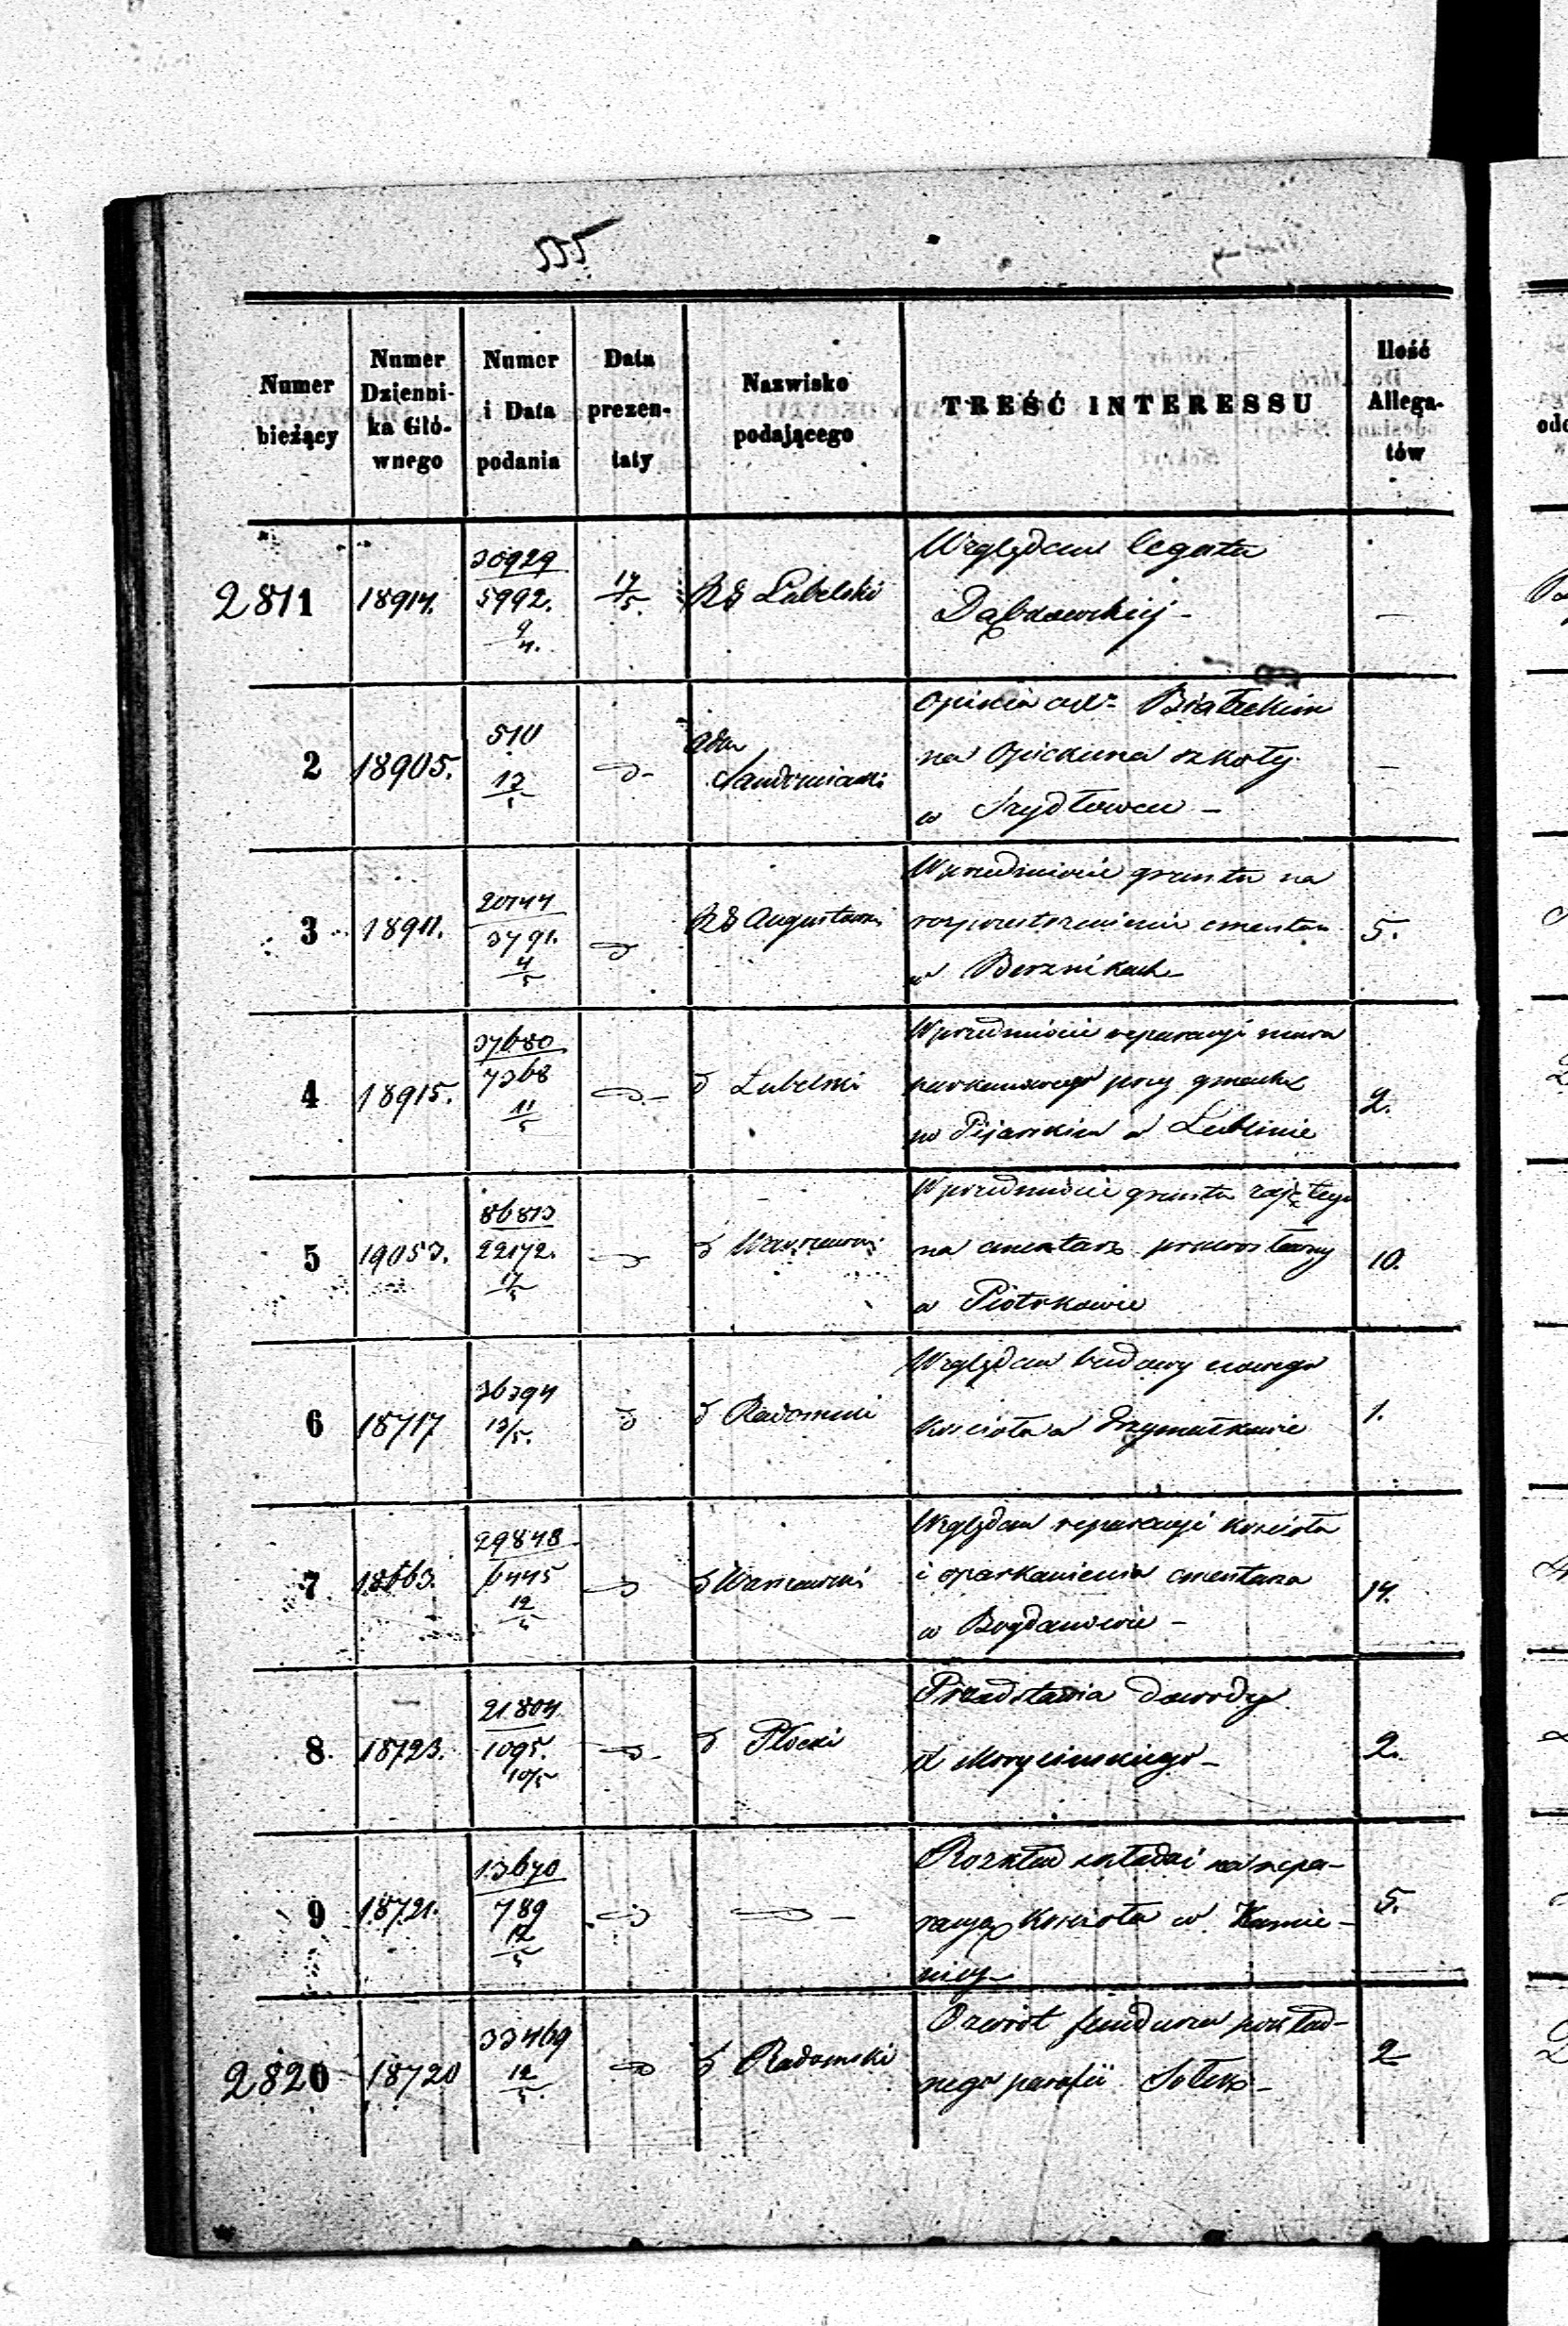 555
Numer bieżący
Numer Dzienni-ka Głó-wnego
Numer i Data podania
Data prezen-taty
Nazwisko podającego
TREŚĆ INTERESSU
Ilość Allega-tów
2811 18914. 30929 5992. 9/4. 17/5. RG Lubelski
Względem legatu
Dąbrowskiej - —
2 18905. 510 13/5 d-
Adm Sandomirski
Opinia
na Opiekuna szkoły
w Szydłowcu - —
3 18911. 20744 3791. 4/5 d RG Augustowski
W przedmiocie gruntu na
rozprzestrzenienie cmentarza
w Berznikach 5.
4 18915. 37680 7368 11/5 d.- d Lubelski
W przedmiocie reparacji muru
parkanowego przy gmachu
po Pijarskim w Lublinie 2.
5 19053. 86813 22172. 17/5 d d Warszawski
W przedmiocie gruntu zajętego
na cmentarz prawosławny
w Piotrkowie 10.
6 18717 36394 13/5. d d Radomski
Względem budowy nowego
Kościoła w Grzymałkowie 1.
7 18663. 29848 6445 12/5 d d Warszawski
Względem reparacyi kościoła
i oparkanienia cmentarza
w Bogdanowie - 14.
8. 18723. 21804 1095. 10/5 d- d Płocki
Przedstawia dowody
X. Morycińskiego - 2.
9 18721. 13670 789 12/5 d d -
Rozkład składki na repa-
racyą Kościoła w Kamie-
nicy - 5.
2820 18720 33469 12/5 d d Radomski
Ozwrot funduszu
nego parafii Solec - 2